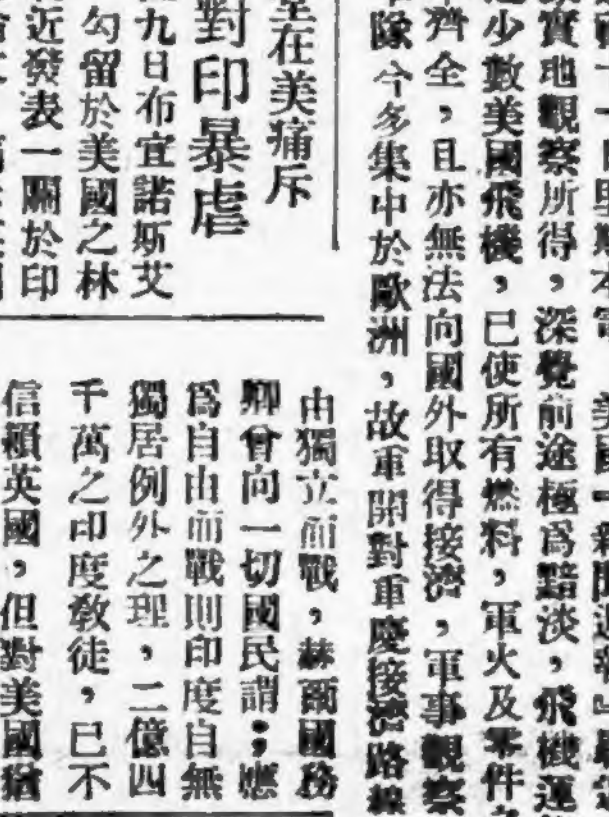 實地觀察所得，深覺前途極爲黯淡，飛機運
少數美國飛機，已使所有燃料，軍火及零件
齊全，且亦無法向國外取得接濟，軍事觀察
隊今多集中於歐洲，故重開對重慶接濟路線
在美痛斥
對印暴虐
九日布宜諾斯艾
勾留於美國之林
近發表一關於印
由獨立而戰，赫爾國務
卿曾向一切國民謂：應
爲自由而戰則印度自無
獨居例外之理，二億四
千萬之印度敎徒，已不
信賴英國，但對美國猶